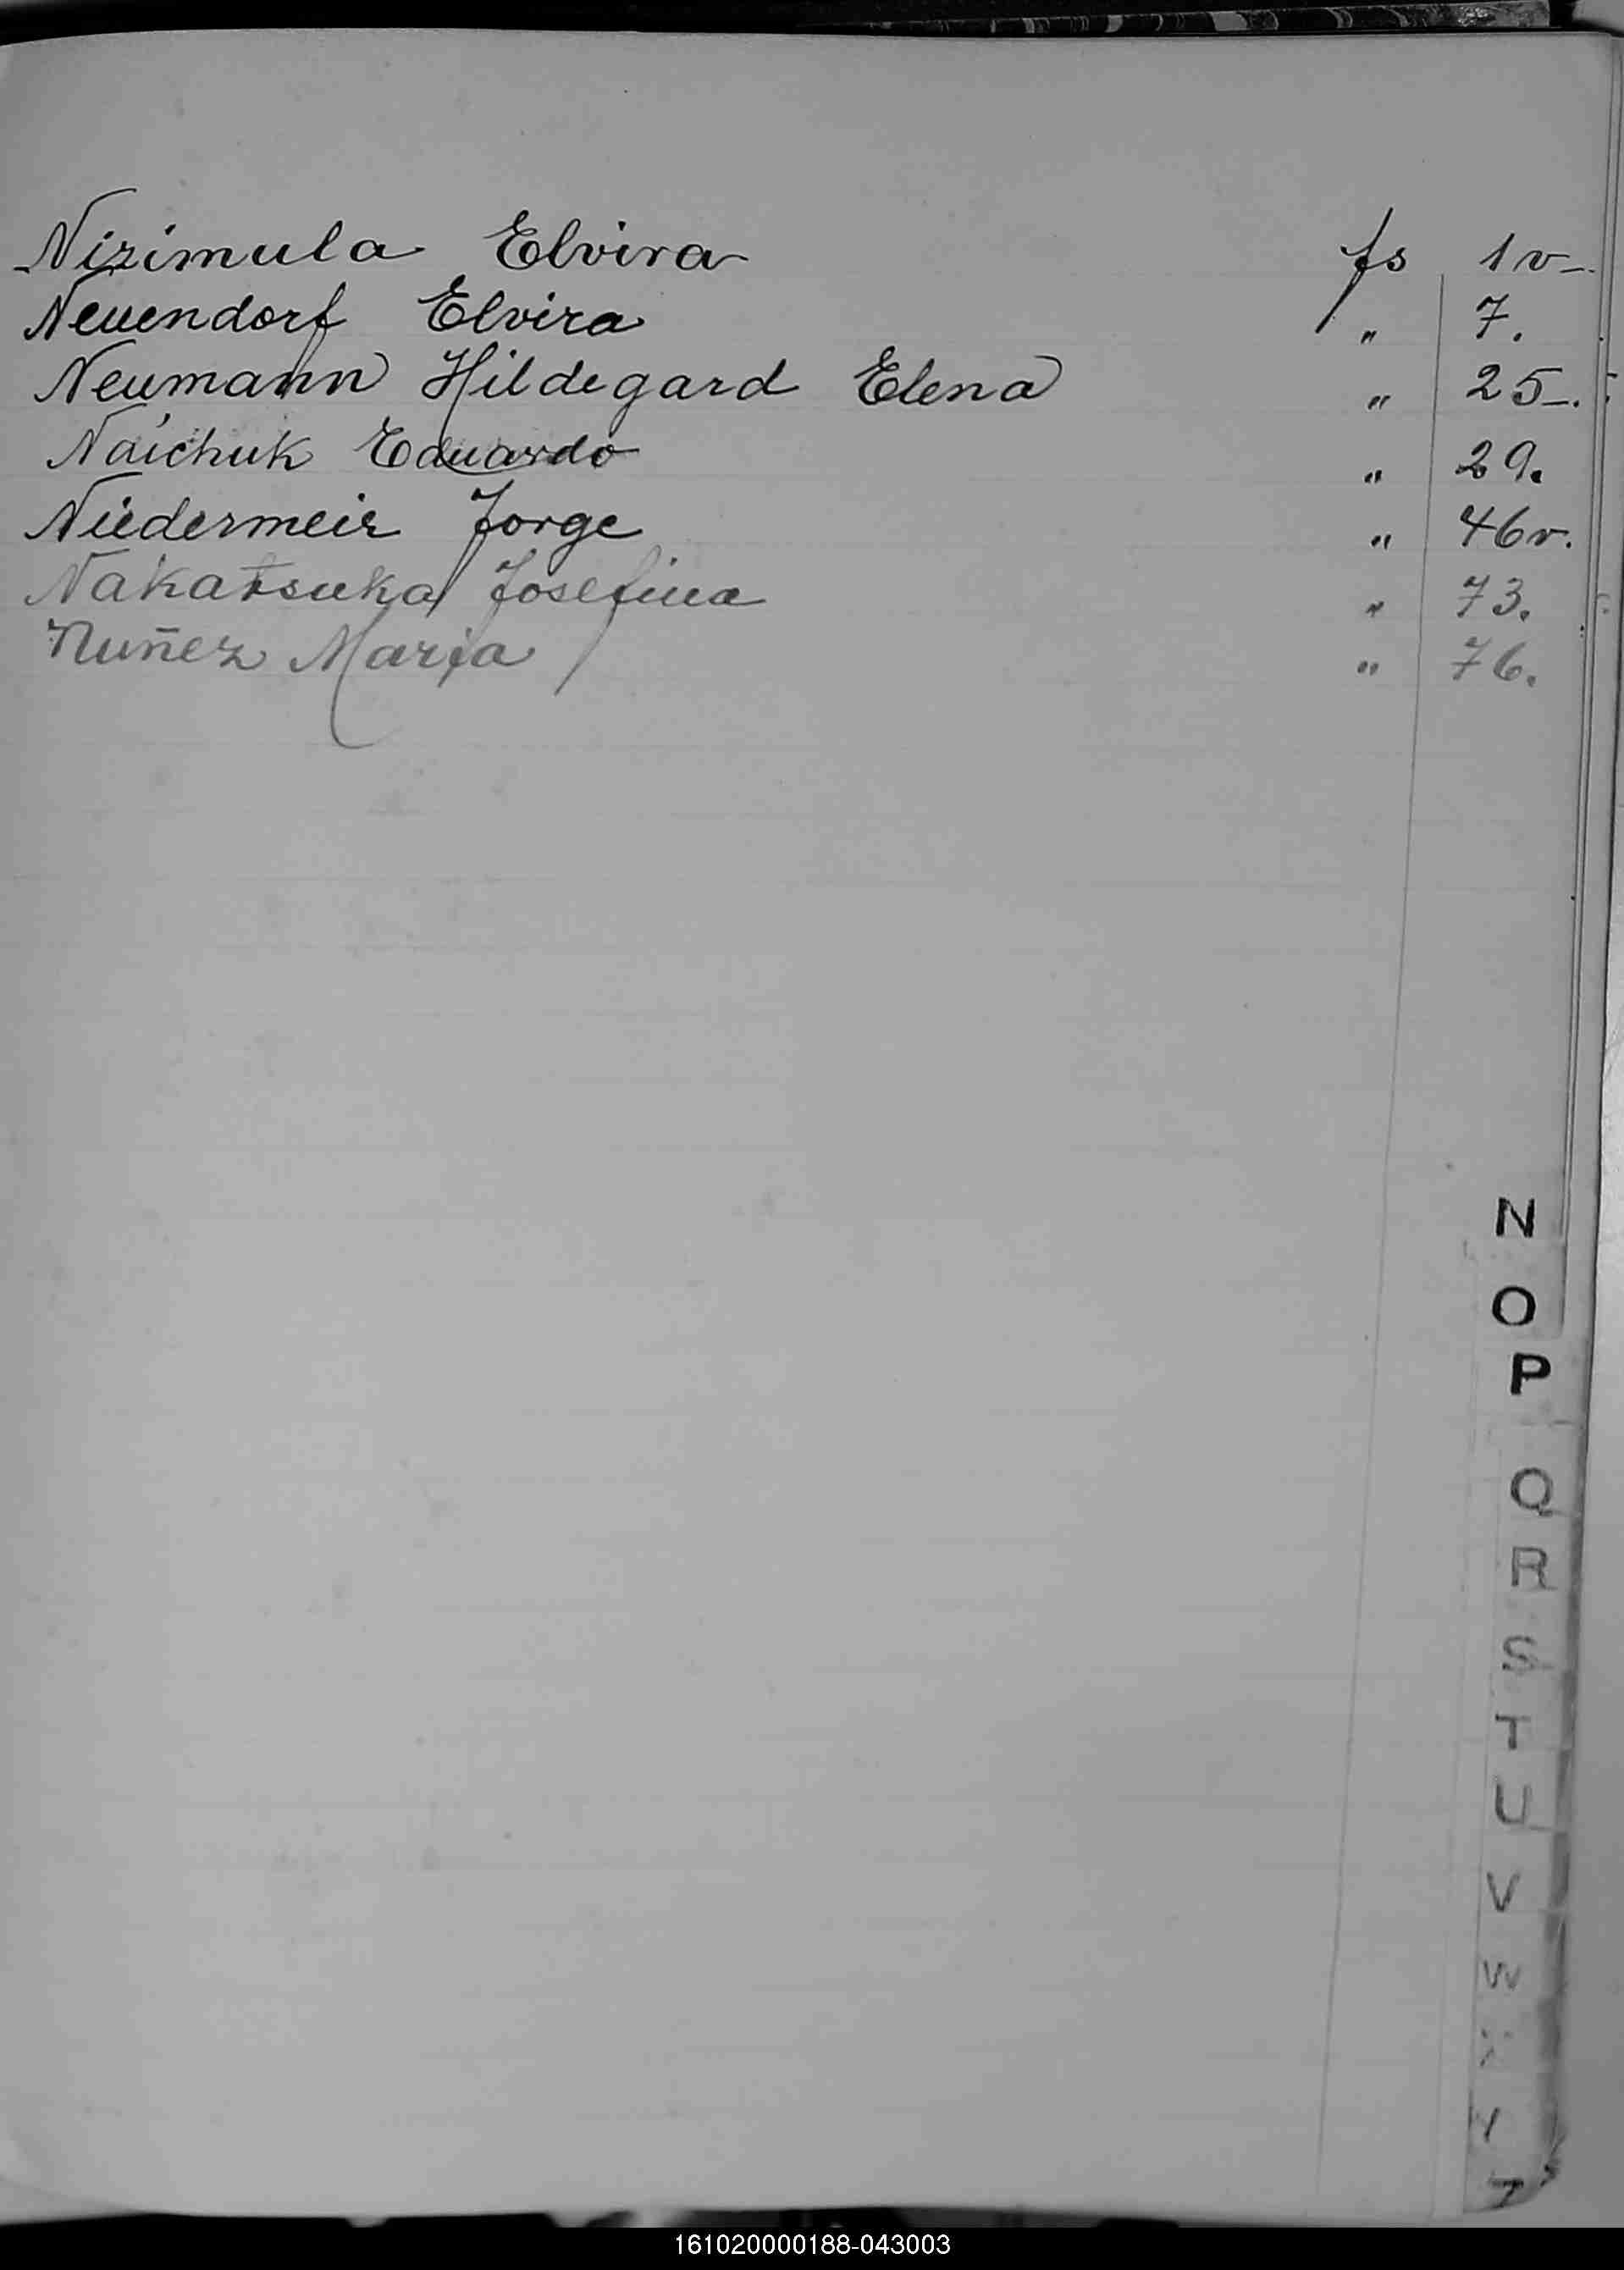 Nizimula Elvira fs 1v-.
Neuendorf Elvira " 7.
Neumann Hildegard Elena " 25-.
Naichuk Eduardo " 29.
Niedermeir Jorge " 46v.
Nakatsuka Josefina " 73.
Nuñez Maria " 76.
N
O
P
Q
R
S
T
U
V
W
X
Y
Z
161020000188-043003